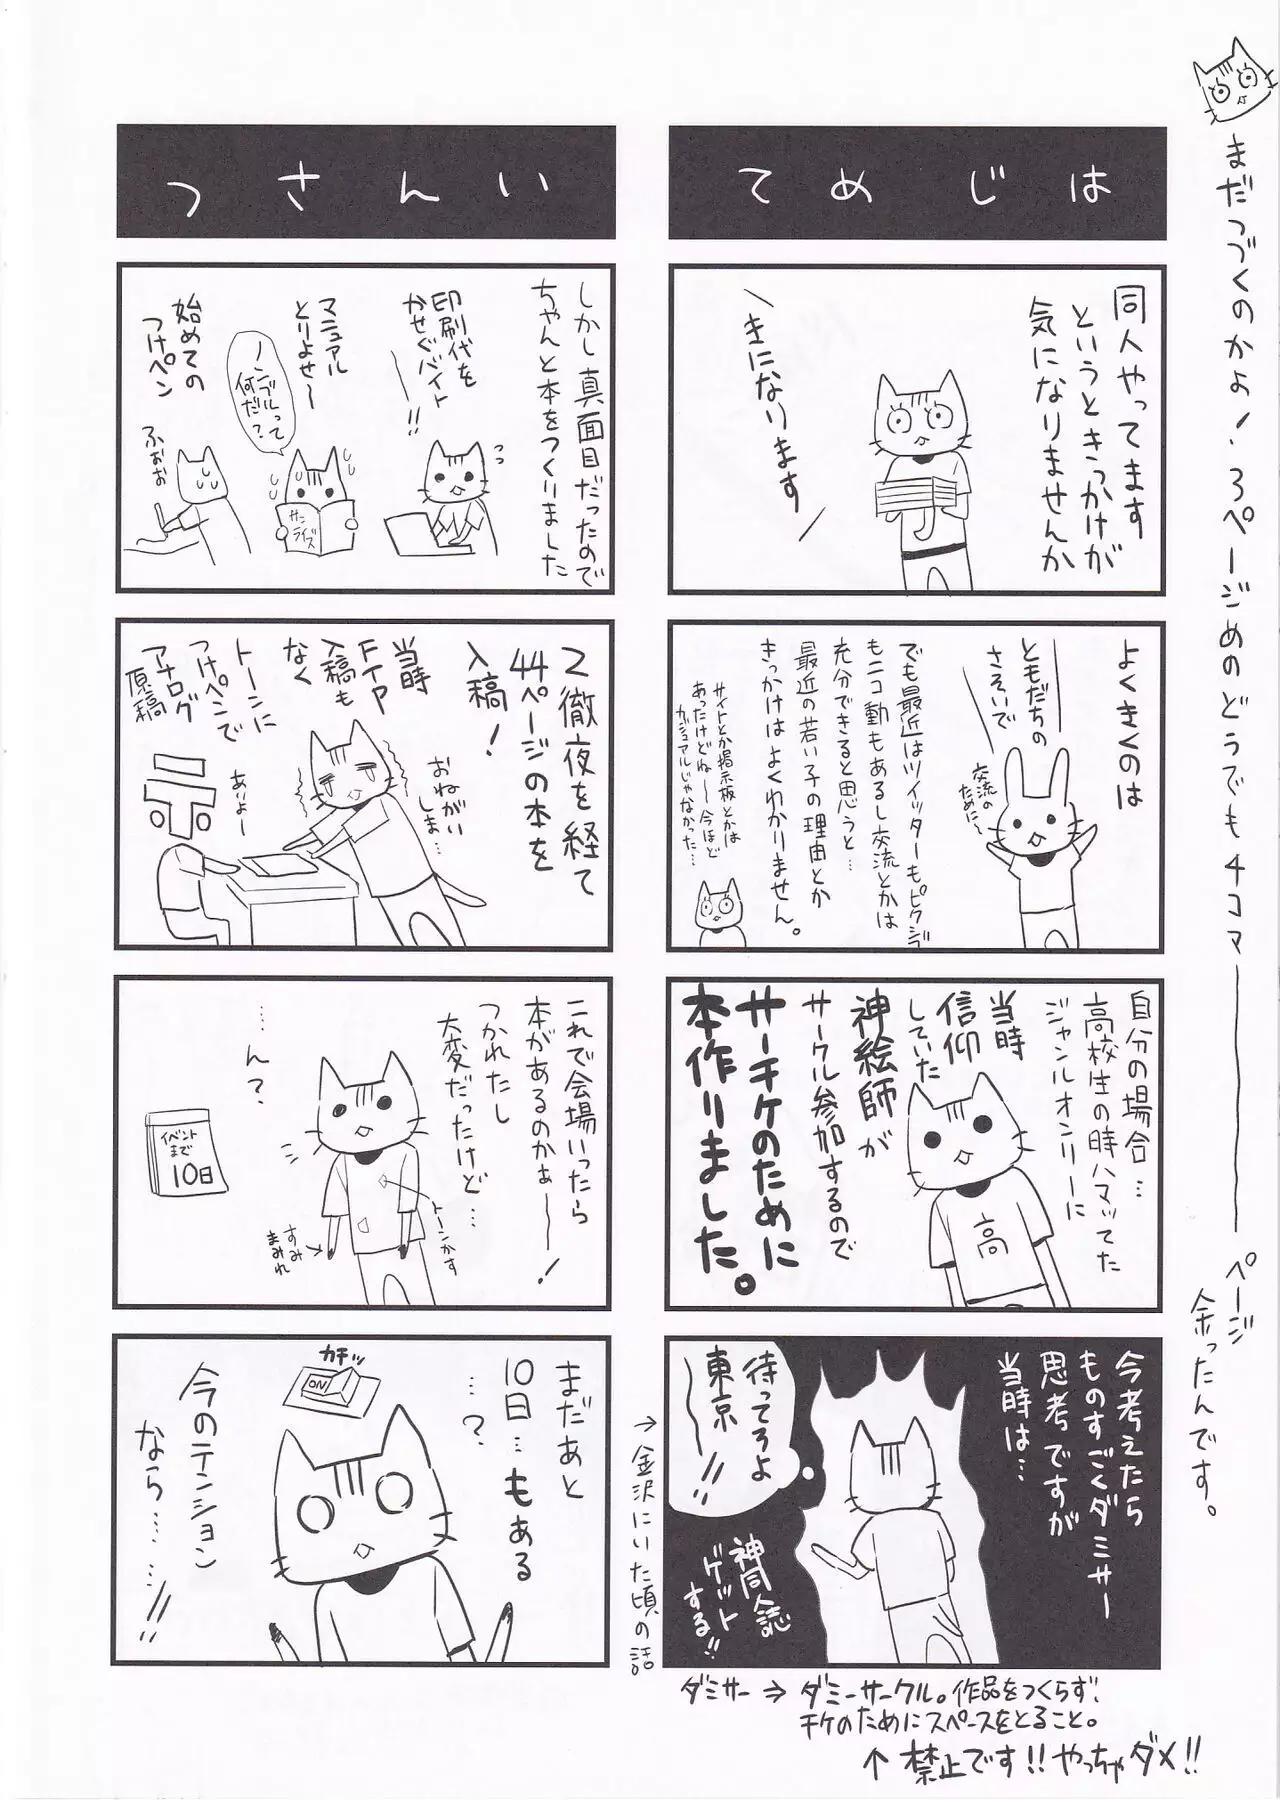 まだつづくのかよ!3ページめのどうでも4コマ――――ページ
余ったんです。
はじめて
同人やってます
というときっかけが
気になりませんか
\きになります/
よくきくのは
ともだちの
さそいで
交流の
ために〜
でも最近はツイッターもピクシブ
もニコ動もあるし交流とかは
充分できると思うと…
最近の若い子の理由とか
きっかけはよくわかりません。
サイトとか掲示板とかは
あったけどね——今ほど
カジュアルじゃなかった…
自分の場合…
高校生の時ハマってた
ジャンルオンリーに
当時
信仰
していた
神絵師が
サークル参加するので
サーチケのために
本作りました。
高
今考えたら
ものすごくダミサー
思考ですが
当時は…
待ってろよ
東京——!!
神同人誌
ゲット
する!!
→金沢にいた頃の話
ダミサー⇒ダミーサークル。作品をつくらず、
チケのためにスペースをとること。
↑禁止です!!やっちゃダメ!!
いんさつ
しかし真面目だったので
ちゃんと本をつくりました
印刷代を
かせぐバイト
——!!
マニュアル
とりよせ〜
ノンブルって
何だ?
サン
ライズ
始めての
つけペン
ふぉぉ
2徹夜を経て
44ページの本を
入稿!
当時
FTP
入稿も
なく
トーンに
つけペンで
アナログ
原稿
おねがい
しま…
ありよー
これで会場いったら
本があるのかぁ——!
つかれたし
大変だったけど…
トーンかす
すみ
まみれ
……ん?
イベント
まで
10日
まだあと
10日…もある
…?
カチッ
ON
今のテンション
なら……!!